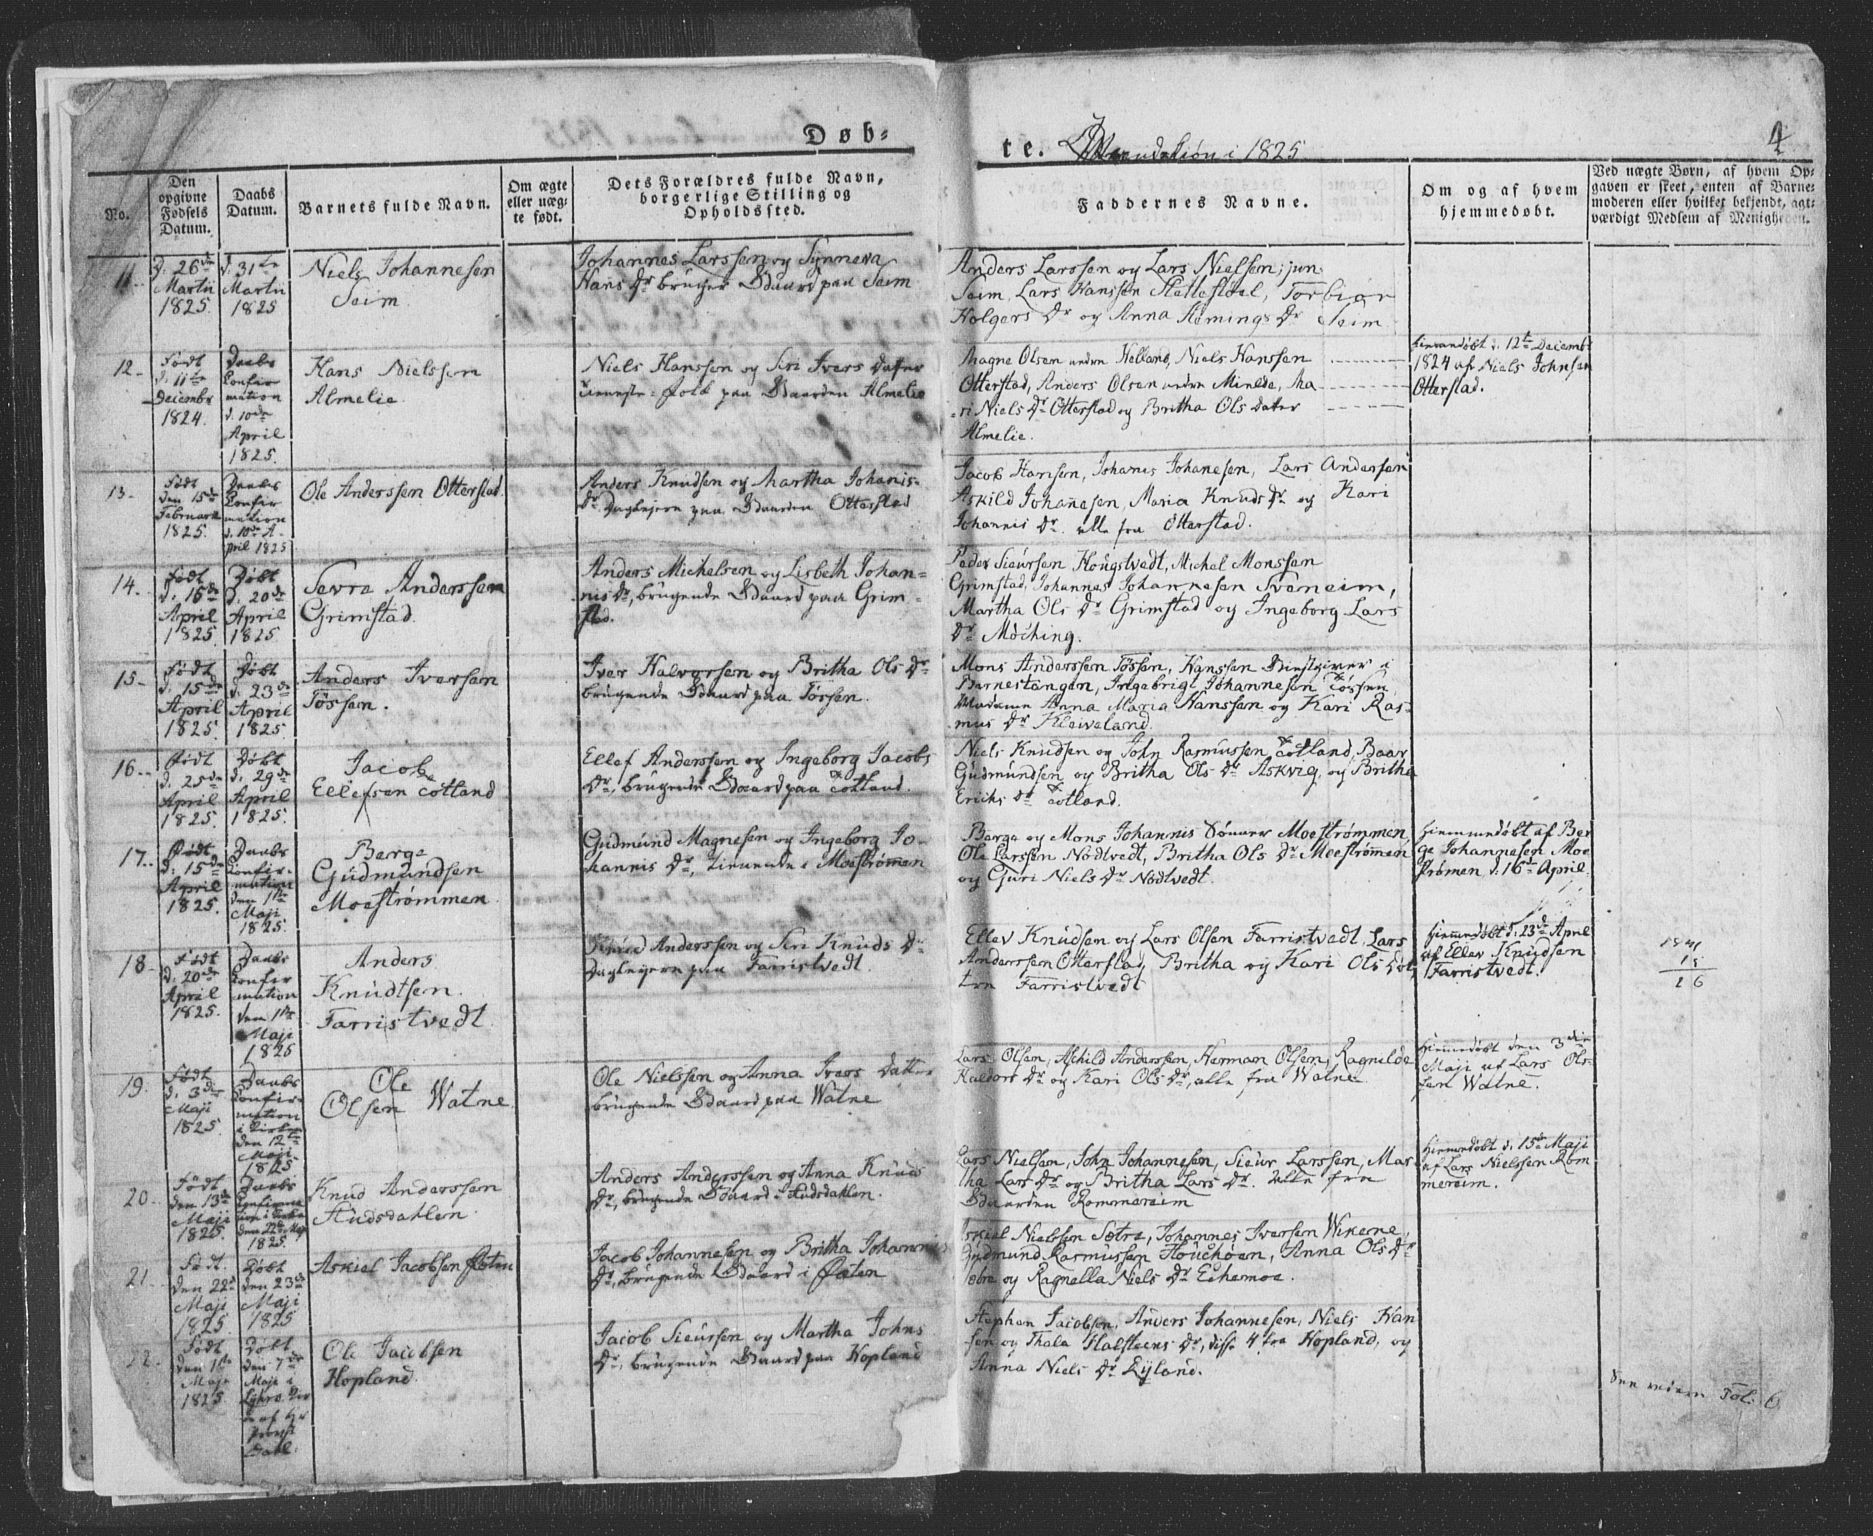 Døb-
te. Mandkiøn i 1825
4
No.
Den opgivne Fødsels Datum.
Daabs Datum.
Barnets fulde Navn.
Om ægte eller uægte født.
Dets Forældres fulde Navn, borgerlige Stilling og Opholdssted.
Faddernes Navne.
Om og af hvem hjemmedøbt.
Ved uægte Børn, af hvem Opgaven er skeet, enten af Barnemoderen eller hvilket bekjendt, agtværdigt Medlem af Menigheden.
11.
d. 26de
Martii
1825.
d. 31te
Martii
1825
Niels Johannesen
Seim.
Johannes Larssen og Synneva
Hans Dr bruger Gaard paa Seim
Anders Larssen og Lars Nielsen jun.
Seim, Lars Hanssen Slettestøel, Torbiør
Holgers Dr og Anna Hemings Dr Seim
12.
Født
d. 11te
Decembr
1824.
Daabs
Confir
mation
d. 10de
April
1825.
Hans Nielssen
Almelie.
Niels Hanssen og Siri Ivers Dater
tieneste-Folk paa Gaarden Almelie
Magne Olsen nedre Helland, Niels Hanssen
Otterstad, Anders Olsen nedre Minlde, Ma
ri Niels Dr Otterstad og Britha Ols Dater
Almelie.
hiemmedøbt d. 12te Decemb
1824 af Niels Johnsen
Otterstad.
13.
Født
den 15de
Februarii
1825.
Daabs
Confir
mation
d. 10de A-
pril 1825
Ole Anderssen Otterstad.
Anders Knudsen og Martha Johanis-
Dr Dagleiere paa Gaarden Otterstad
Jacob Hansen, Johanis Johanesen, Lars Andersen
Askild Johanesen, Maria Knuds Dr og Kari
Johannis Dr alle fra Otterstad.
14.
Født
d. 15de
April
1825
Døbt
d. 20de
April
1825
Sevre Anderssen
Grimstad.
Anders Michelsen og Lisbeth Johan-
nis Dr, brugende Gaard paa Grim-
stad.
Peder Sieursen Hougstvedt, Michel Monssen
Grimstad, Johannes Johannesen Sveneim,
Martha Ols Dr Grimstad og Ingeborg Lars
Dr Möching.
15.
Født
d. 15de
April
1825.
Døbt
d. 23de
April
1825.
Anders Iversen
Tössen.
Iver Halvorsen og Britha Ols Dr
brugende Gaard paa Tössen.
Mons Anderssen Tössen, Hanssen Giestgiver i
Barnestangen, Ingebrigt Johannesen Tössen,
Madame Anna Maria Hanssen og Kari Ras-
mus Dr Kleiveland.
16.
Født
d. 25de
April
1825.
Døbt
d. 29de
April
1825.
Jacob
Ellefsen Totland
Ellef Anderssen og Ingeborg Jacobs
Dr, brugende Gaard paa Totland.
Niels Knudsen og John Rasmussen Totland, Baar
Gudmundsen og Britha Ols Dr Askvig, og Britha
Erichs Dr Totland.
17.
Født
d. 15de
April
1825.
Daabs
Confir-
mation
den 1ste
Maji
1825.
Berge
Gudmundsen
Moestrømmen.
Gudmund Magnesen og Ingeborg Jo-
hannis Dr, tienende i Moestrømen
Berge og Mons Johannis Sønner Moestrømmen
Ole Larssen Nödtvedt, Britha Ols Dr Moestrømmen
og Guri Niels Dr Nödtvedt.
hiemmedøbt af Ber
ge Johannesen Moe
strømen d. 16de April.
18.
Født
d. 20de
April
1825.
Daabs
Confir
mation
den 1ste
Maji
1825
Anders
Knudtsen
Farristvedt.
Knud Anderssen og Siri Knuds Dr
Dagleiere paa Farristvedt.
Ellev Knudsen og Lars Olsen Farristvedt, Lars
Anderssen Otterstad, Britha og Kari Ols Døt
tre Farristvedt
hiemmedøbt d. 23de April
af Ellev Knudsen
Farristvedt.
1841
15
26
19.
Født
d. 3de
Maji
1825.
Daabs
Confir-
mation
i Kirken
den 12te
Maji
1825.
Ole
Olsen Watne.
Ole Nielssen og Anna Ivers Datter
brugende Gaard paa Watne
Lars Olsen, Aschild Anderssen, Herman Olsen, Ragnilde
Haldors Dr og Kari Ols Dr, alle fra Watne.
hiemmedøbt den 3die
Maji af Lars Ols-
sen Watne.
20.
Født
den 13de
Maji
1825.
Daabs
Confirma
tion i Kirken
den 22de Maj
1825.
Knud Anderssen
Hudsdahlen.
Anders Anderssen og Anna Knuds
Dr, brugende Gaard i Hudsdahlen.
Lars Nielsen, John Johannesen, Sieur Larssen, Mar
tha Lars Dr og Britha Lars Dr. Alle fra
Gaarden Rommereim
hiemmedøbt d. 15de Maji
af Lars Nielssen Rom
mereim.
21.
Født.
den 22de
Maji
1825
Døbt
den 23de
Maji
1825
Askiel Jacobsen Øxten
Jacob Johannesen og Britha Johannis
Dr, brugende Gaard i Øxten
Askiel Nielssen Sætre, Johannes Iversen Wikene,
Gudmund Rasmussen Houchöen, Anna Ols Dr
Sætre og Ragnella Niels Dr Echemoe.
22.
Født
den 1ste
Maji
1825
Døbt
den 7de
Maji i
Lykro Kir
ke af Hr
Provst
Dahl.
Ole Jacobsen
Hopland.
Jacob Sieursen og Martha Johns
Dr, brugende Gaard paa Hopland
Stephen Jacobsen, Anders Johannesen, Niels Han
sen og Thala Halsteens Dr, disse 4 fra Hopland, og
Anna Niels Dr Eyland.
See videre Fol: 6